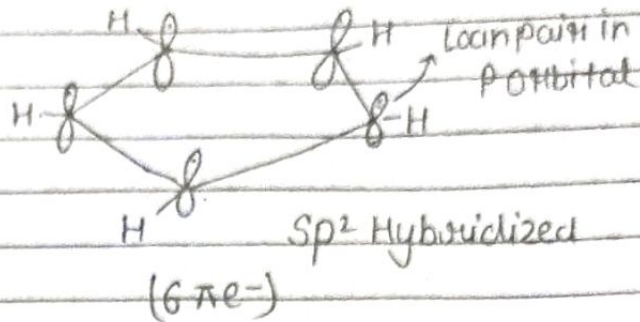 H H
Loan pair in
H P orbital
H
H
Sp² Hybridized
(6πe-)